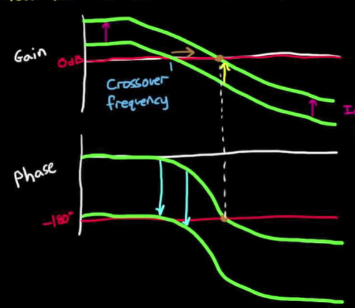 Gain
0dB
Crossover
frequency
Phase
-180°